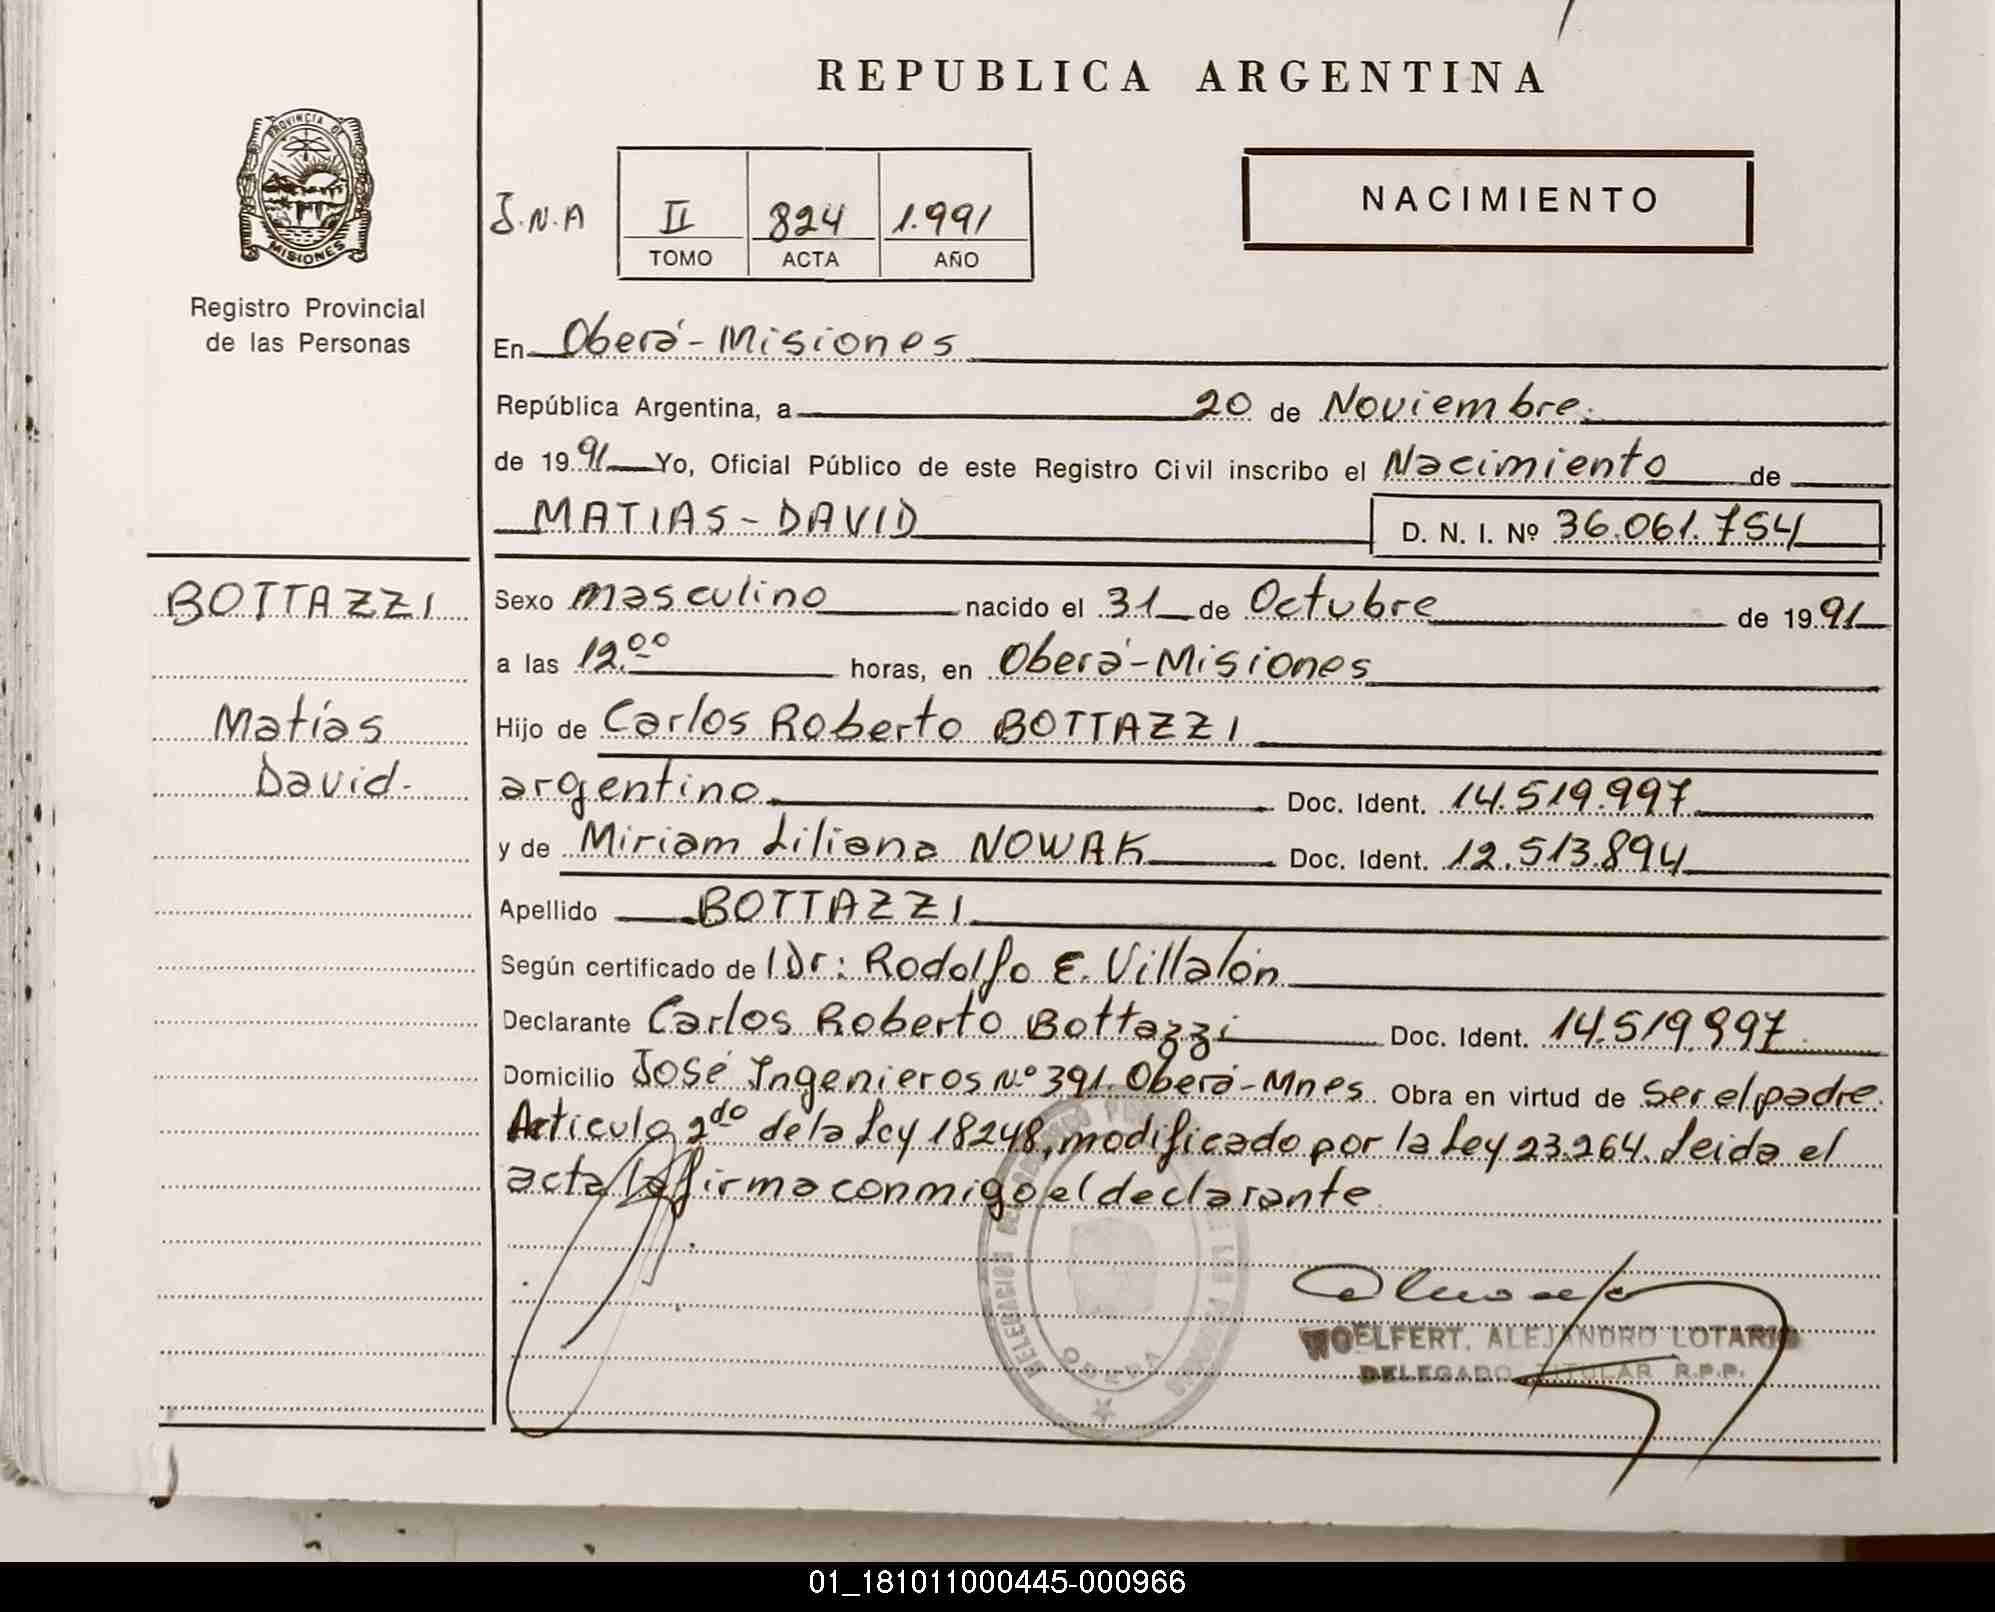 REPUBLICA ARGENTINA
PROVINCIA DE
MISIONES
Registro Provincial
de las Personas
J.N.A
II 824 1.991
TOMO ACTA AÑO
NACIMIENTO
En Oberá-Misiones
República Argentina, a 20 de Noviembre.
de 1991 Yo, Oficial Público de este Registro Civil inscribo el Nacimiento de
MATIAS-DAVID D. N. I. Nº 36.061.754
BOTTAZZI
Matías
David.
Sexo masculino nacido el 31 de Octubre de 1991
a las 12.00 horas, en Oberá-Misiones
Hijo de Carlos Roberto BOTTAZZI
argentino Doc. Ident. 14.519.997
y de Miriam Liliana NOWAK Doc. Ident. 12.513.894
Apellido BOTTAZZI
Según certificado de Dr: Rodolfo E. Villalón
Declarante Carlos Roberto Bottazzi Doc. Ident. 14.519.997
Domicilio José Ingenieros N.º 391. Oberá-Mnes Obra en virtud de ser el padre.
Articulo 2do de la Ley 18248, modificado por la Ley 23.264. Leida el
acta la firma conmigo el declarante
DELEGACION DE LAS PERSONAS
OBERA
WOELFERT, ALEJANDRO LOTARIO
DELEGADO TITULAR R.P.P.
01_181011000445-000966